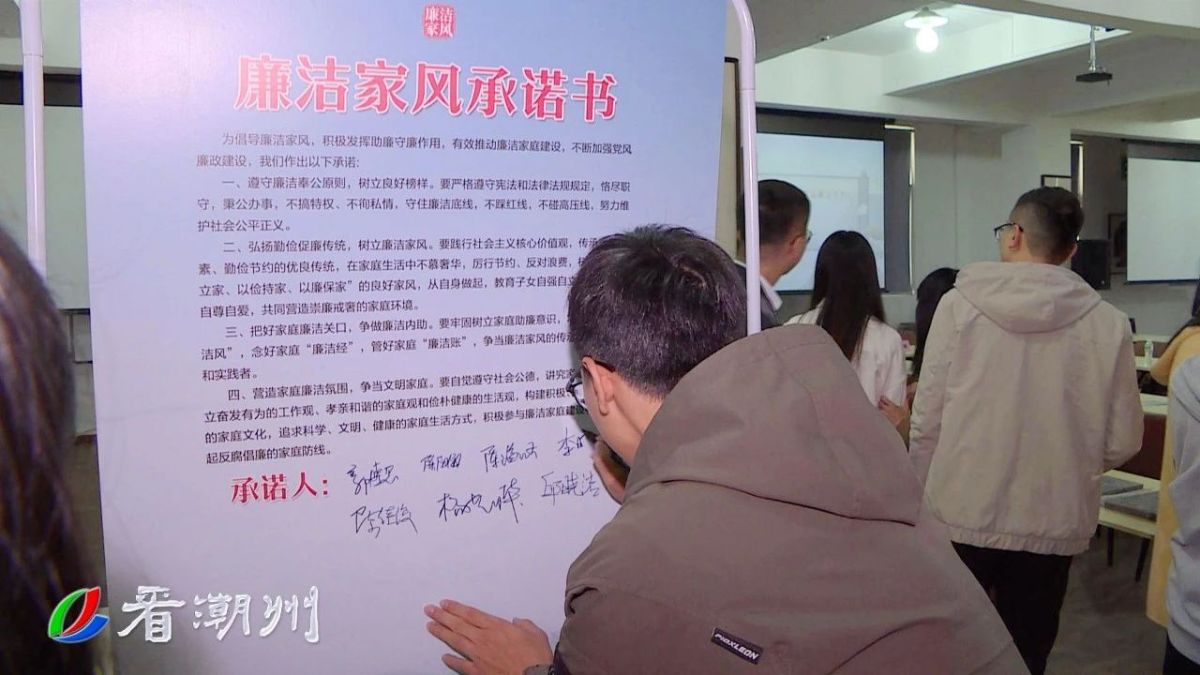 廉洁
家风
廉洁家风承诺书
为倡导廉洁家风，积极发挥助廉守廉作用，有效推动廉洁家庭建设，不断加强党风
廉政建设，我们作出以下承诺：
一、遵守廉洁奉公原则，树立良好榜样。要严格遵守宪法和法律法规规定，恪尽职
守，秉公办事，不搞特权、不徇私情，守住廉洁底线，不踩红线，不碰高压线，努力维
护社会公平正义。
二、弘扬勤俭促廉传统，树立廉洁家风。要践行社会主义核心价值观，传承
素、勤俭节约的优良传统，在家庭生活中不慕奢华，厉行节约、反对浪费，
立家、以俭持家、以廉保家”的良好家风，从自身做起，教育子女自强自立
自尊自爱，共同营造崇廉戒奢的家庭环境。
三、把好家庭廉洁关口，争做廉洁内助。要牢固树立家庭助廉意识，
洁风”，念好家庭“廉洁经”，管好家庭“廉洁账”，争当廉洁家风的传
和实践者。
四、营造家庭廉洁氛围，争当文明家庭。要自觉遵守社会公德，讲究
立奋发有为的工作观、孝亲和谐的家庭观和俭朴健康的生活观，构建积极
的家庭文化，追求科学、文明、健康的家庭生活方式，积极参与廉洁家庭建
起反腐倡廉的家庭防线。
承诺人：
PHOXLEON
看潮州